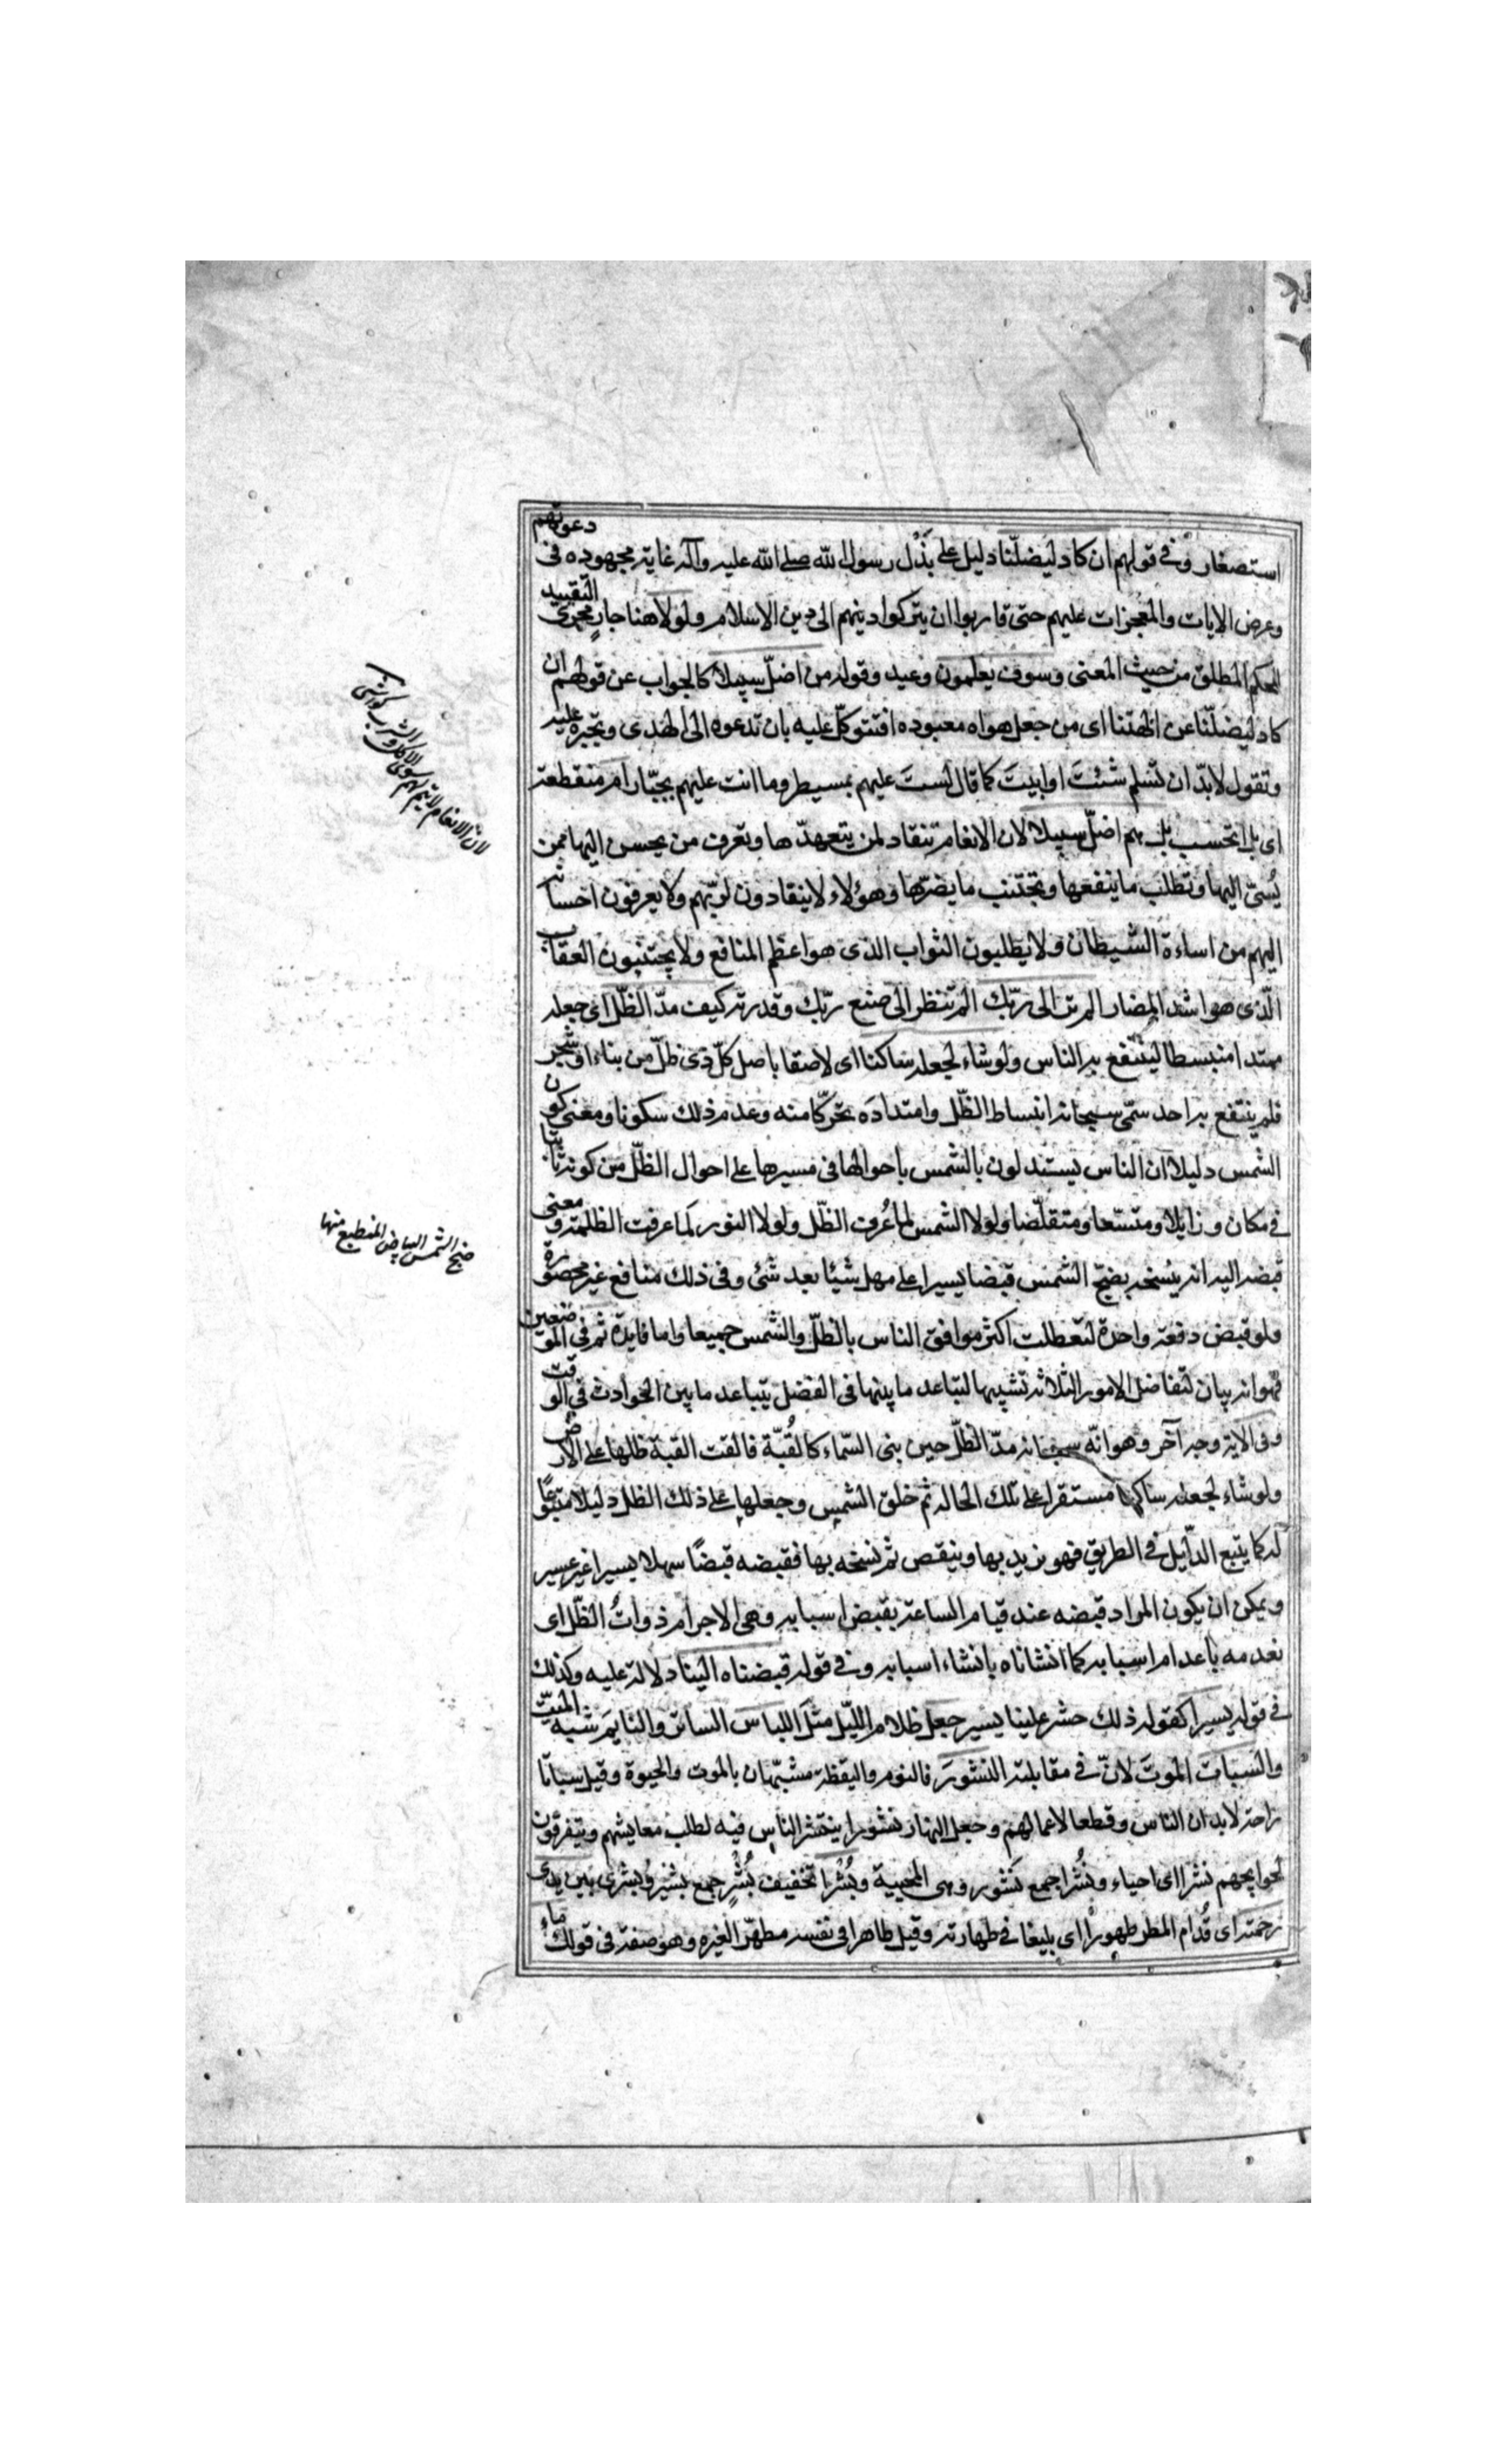 استصغار وفى قولهم ان كاد ليضلّنا دليل على بذل رسول الله صلى الله عليه وآله غاية مجهوده فى دعوتهم
وعرض الايات والمعجزات عليهم حتى قاربوا ان يتركوا دينهم الى دين الاسلام ولولا هنا جارٍ مجرى التقييد
للحكم المطلق من حيث المعنى وسوف يعلمون وعيد وقوله من اضلّ سبيلا كالجواب عن قولهم ان
كاد ليضلّنا عن الهتنا اى من جعل هواه معبوده افتتوكّل عليه بان تدعوه الى الهدى وتجبره عليه
وتقول لابدّ ان تسلم شئتَ او ابيتَ كما قال لستَ عليهم بمسيطر وما انت عليهم بجبّار ام منقطعة
اى بل اتحسب بل هم اضلّ سبيلا لان الانعام تنقاد لمن يتعهدّها وتعرف من يحسن اليها ممن
يُسئ اليها وتطلب ما ينفعها وتجتنب ما يضرّها وهؤلاء لا ينقادون لربّهم ولا يعرفون احسانه
اليهم من اساءة الشيطان ولا يطلبون الثواب الذى هو اعظم المنافع ولا يجتنبون العقاب
الّذى هو اشد المضار الم تر الى ربّك الم تنظر الى صنع ربّك وقدرته كيف مدّ الظلّ اى جعله
ممتدا منبسطا لينتفع به الناس ولو شاء لجعله ساكنا اى لاصقا باصل كلّ ذى ظلّ من بناء او شجر
فلم ينتفع به احد سمّى سبحانه انبساط الظلّ وامتدادَه تحرّكا منه وعدم ذلك سكونا ومعنى كون
الشمس دليلا ان الناس يستدلون بالشمس باحوالها فى مسيرها على احوال الظلّ من كونه ثابتا
فى مكان وزايلا ومتسعا ومتقلّصا ولولا الشمس لما عُرف الظلّ ولولا النور لما عرفت الظلمة ومعنى
قبضه اليه انه ينسخه بضحّ الشمس قبضا يسيرا على مهل شيئا بعد شئ وفى ذلك منافع غير محصورة
ولو قبض دفعة واحدة لتعطلت اكثر موافق الناس بالظلّ والشمس جميعا واما فايدة ثم فى الموضعين
فهو انه بيان لتفاضل الامور الثلاثة تشبيها لتباعد ما بينها فى الفضل بتباعد ما بين الحوادث فى الوقت
وفى الاية وجه آخر وهو انّه سبحانه مدّ الظلّ حين بنى السّماء كالقُبّة فالقت القبة ظلها على الارض
ولو شاء لجعله ساكنا مستقرا على تلك الحالة ثم خلق الشمس وجعلها على ذلك الظل دليلا متبوعًا
له كما يتبع الدّليل فى الطريق فهو يزيد بها وينقص ثم نسخه بها فقبضه قبضًا سهلا يسيرا غير عسير
ويمكن ان يكون المراد قبضه عند قيام الساعة بقبض اسبابه وهى الاجرام ذواتُ الظلّ اى
نعدمه باعدام اسبابه كما انشاناه بانشاء اسبابه وفى قوله قبضناه الينا دلالة عليه وكذلك
فى قوله يسيرا كقوله ذلك حشر علينا يسير جعل ظلام الليّل مثلَ اللباس الساتر والنايمَ شبه الميّت
والسّباتَ الموتَ لانّه فى مقابلته النشورَ فالنوم واليقظة مشبّهان بالموت والحيوة وقيل سباتا
راحة لابدان الناس وقطعا لاعمالهم وجعل النهار نشورا ينتشر الناس فيه لطلب معايشهم ويتفرقون
لحوايجهم نشرا اى احياء ونُشُرا جمع نَشور وهى المحيية وبُشْرا تخفيف بُشُرٍ جمع بشير وبُشرى بين يدى
رحمته اى قُدام المطر طهوراً اى بليغا فى طهارته وقيل طاهرا فى نفسه مطهّر الغيره وهو صفة فى قولك ماء
ضحّ الشمس البياض المنطبع منها